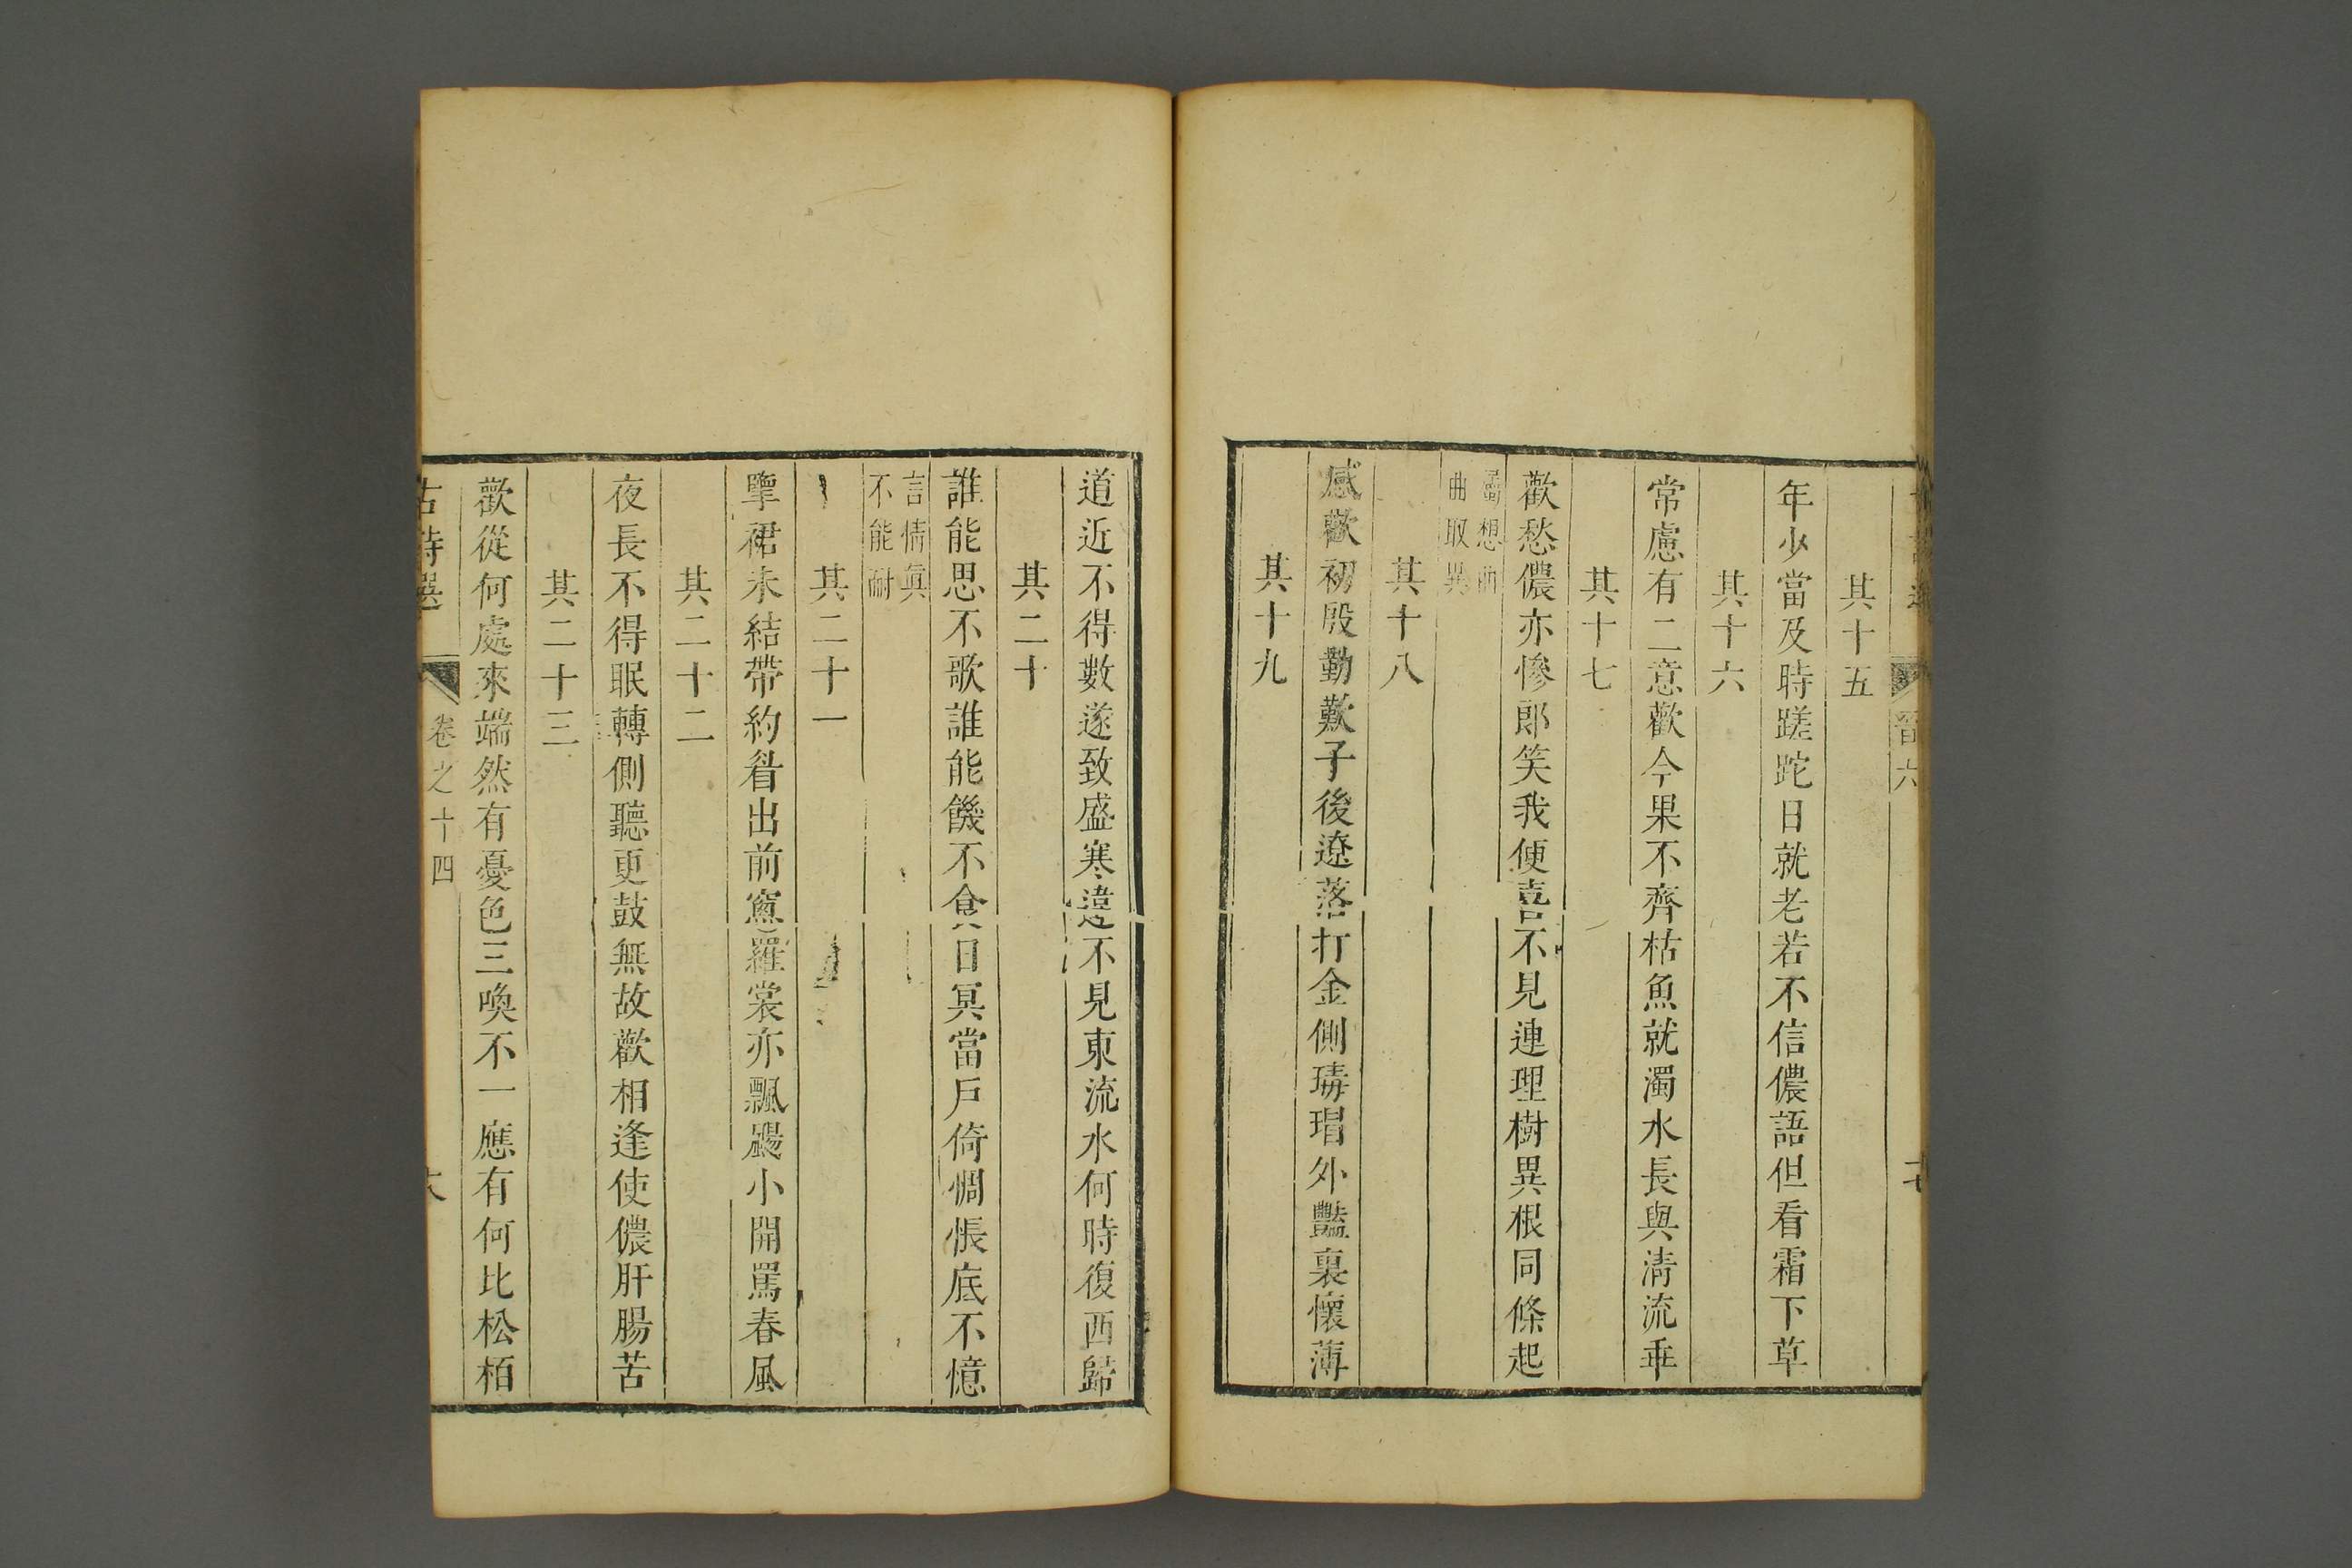 晉六
其十五
年少當及時蹉跎日就老若不信儂語但看霜下草
其十六
常慮有二意歡今果不齊枯魚就濁水長與淸流乖
其十七
歡愁儂亦慘郎笑我便喜不見連理樹異根同條起
想曲
曲取異
其十八
感歡初殷勤歎子後遼落打金側瑇瑁外豔裏懷薄
其十九
道近不得數遂致盛寒違不見東流水何時復西歸
其二十
誰能思不歌誰能饑不食日冥當戶倚惆悵底不憶
言情眞
不能耐
其二十一
擥裙未結帶約睂出前窻羅裳亦飄颺小開罵春風
其二十二
夜長不得眠轉側聽更鼓無故歡相逢使儂肝腸苦
其二十三
歡從何處來端然有憂色三喚不一應有何比松栢
古詩選
卷之十四